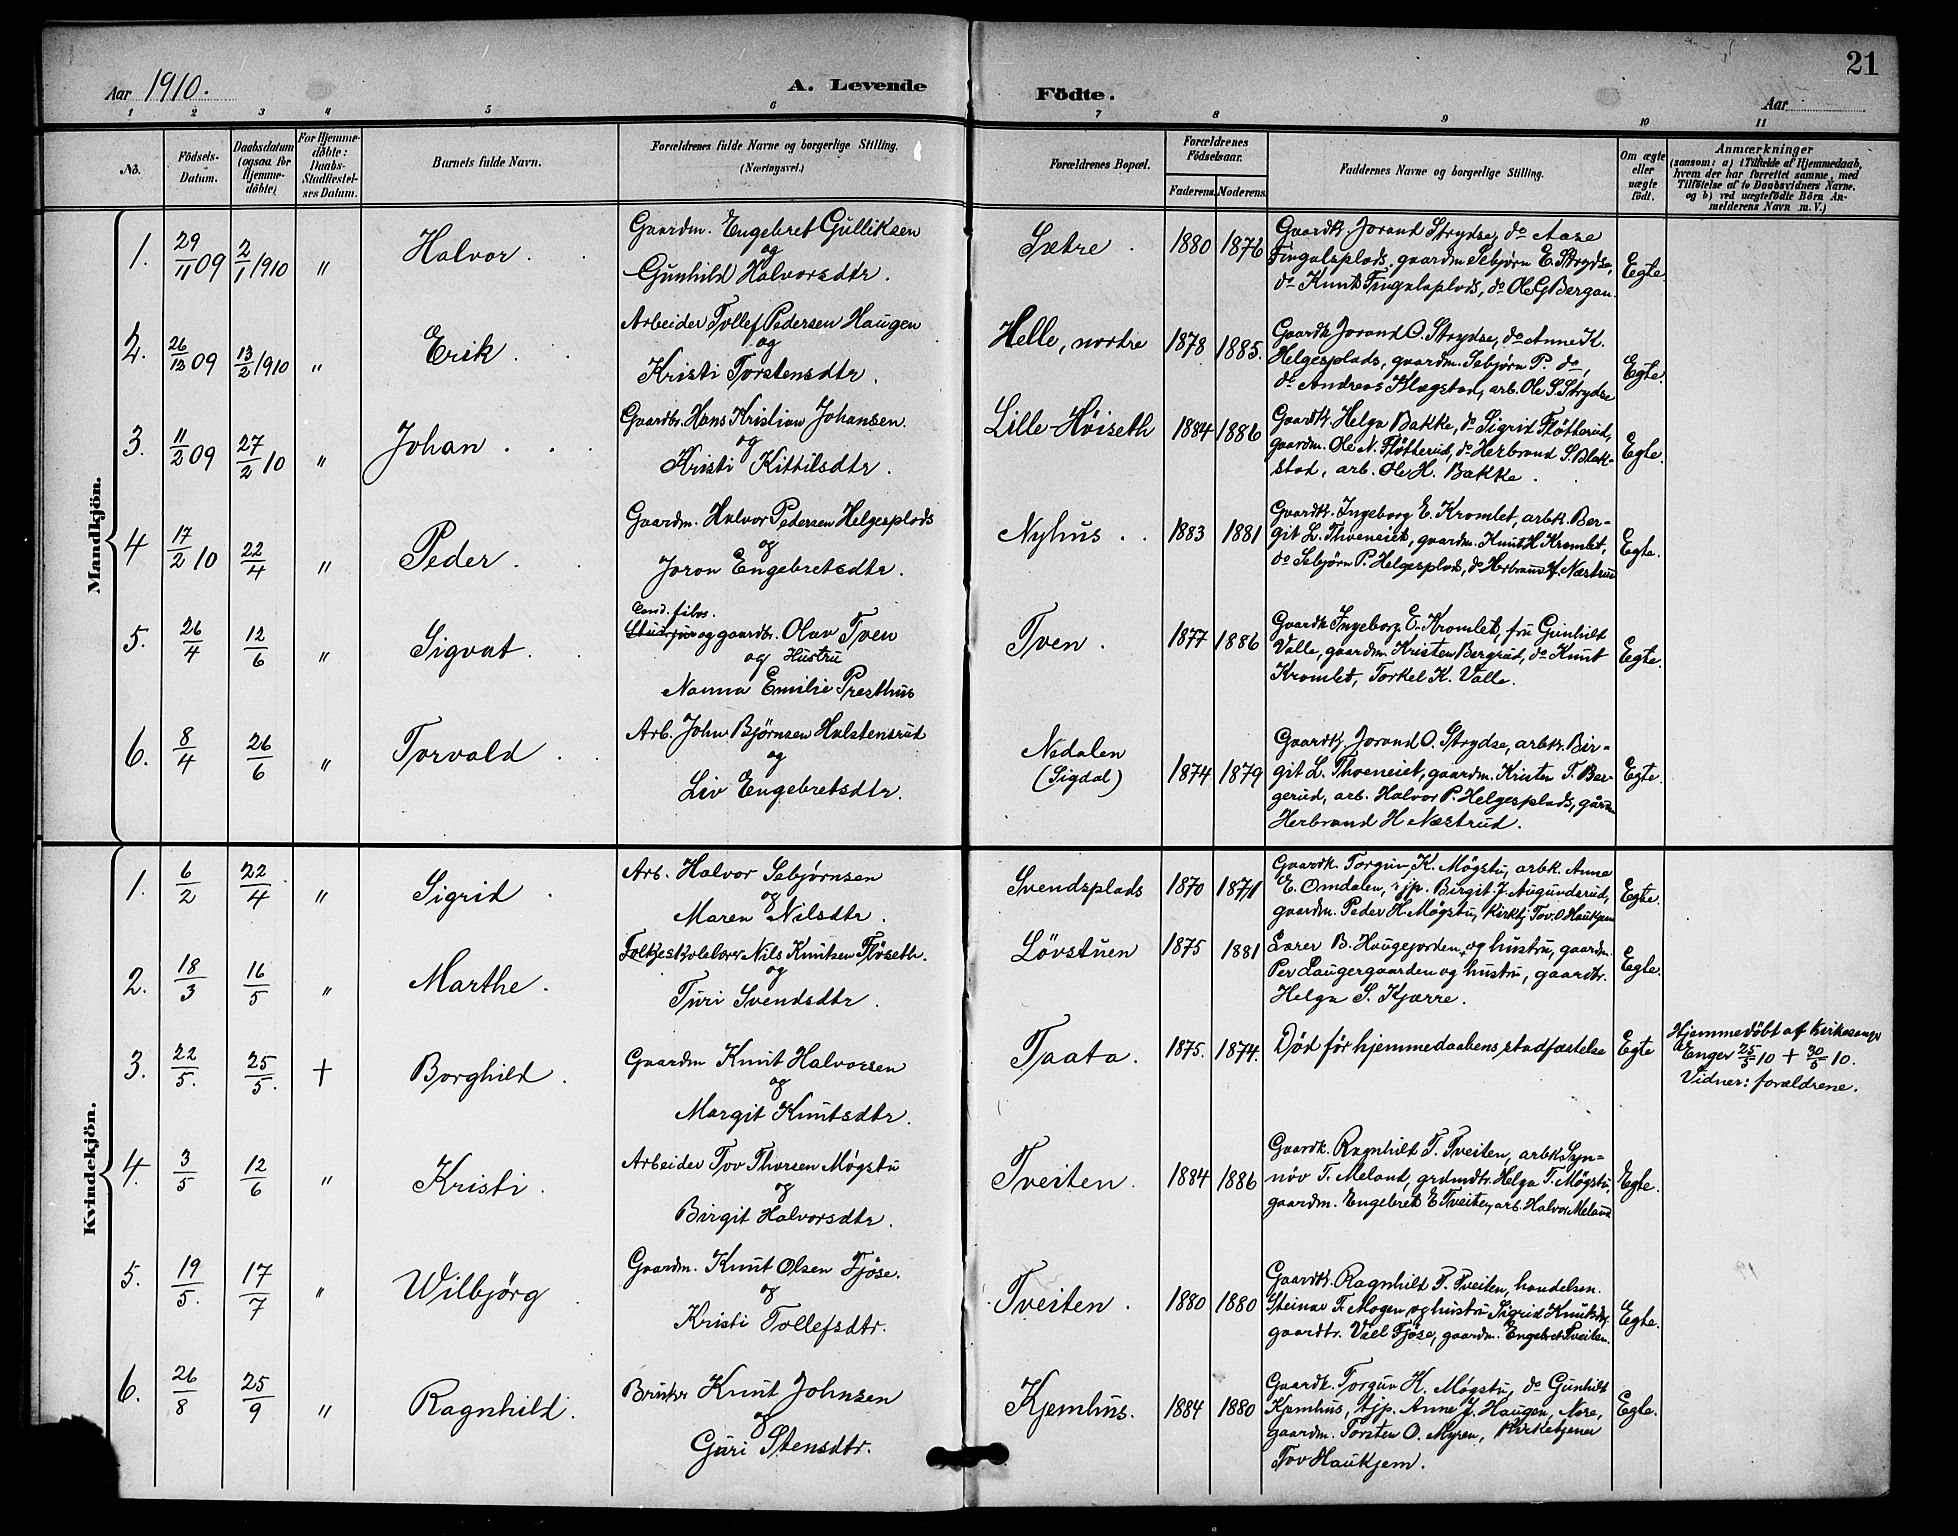 21
Aar 1910.
A. Levende
Födte.
Aar
1 2 3 4 5 6 7 8 9 10 11
No.
Födsels-
Datum.
Daabsdatum
(ogsaa for
Hjemme-
döbte).
For Hjemme-
döbte:
Daabs-
Stadfæstel-
ses Datum.
Barnets fulde Navn.
Forældrenes fulde Navne og borgerlige Stilling.
(Næringsvei.)
Forældrenes Bopæl.
Forældrenes
Födselsaar.
Faderens. Moderens.
Faddernes Navne og borgerlige Stilling.
Om ægte
eller
uægte
födt.
Anmærkninger
(saasom: a) i Tilfælde af Hjemmedaab,
hvem der har forrettet samme, med
Tilföielse af to Daabsvidners Navne,
og b) ved uægtefödte Börn An-
melderens Navn m. V.)
Mandkjön.
1. 29/11 09 2/1 1910 " Halvor.
Gaardm. Engebret Gulliksen
og
Gunhild Halvorsdtr.
Sætre. 1880 1876
Gaardk. Jorand Strydse, do Aase
Fingalsplads, gaardm Sebjørn E. Strydse,
do Knut Fingalsplads, do Ole G Bergan.
Egte.
2. 26/12 09 13/2 1910 " Erik.
Arbeider Tollef Pedersen Haugen
og
Kristi Torstensdtr.
Helle, nordre 1878 1885.
Gaardk Jorand O. Strydse, do Anne K.
Helgesplads, gaardm. Sebjørn P. do,
do Andreas Klægstad, arb. Ole S. Strydse
Egte.
3. 11/2 09 27/2 10 " Johan.
Gaardbr. Hans Kristian Johansen
og
Kristi Kittilsdtr.
Lille-Höiseth 1884 1886
Gaardk. Helga Bakke, do Sigrid Fløtterud,
gaardm. Ole N. Fløtterud, do Herbrand S. Blak-
stad, arb. Ole H. Bakke.
Egte.
4 17/2 10 22/4 " Peder.
Gaardm. Halvor Pedersen Helgesplads
og
Joron Engebretsdtr.
Nyhus. 1883 1881
Gaardk. Ingeborg E. Kromlet, arbk. Ber-
git L. Thveneiet, gaardm. Knut H Kromlet,
do Sebjørn P. Helgesplads, do Herbrand H. Næstrud
Egte.
5. 26/4 12/6 " Sigvat.
Cand. filos.
og gaardbr. Olav Tven
og Hustru
Nanna Emilie Presthus
Tven. 1877 1886
Gaardk Ingeborg E. Kromlet, fru Gunhilt
Valle, gaardm. Kristen Bergrud, do Knut
Kromlet, Torkel K. Valle.
Egte.
6. 8/4 26/6 " Torvald.
Arb. John Bjørnsen Halstensrud
og
Liv Engebretsdtr.
Nedalen
(Sigdal)
1874 1879
Gaardk Jorand O. Strydse, arbk. Bir-
git L. Thveneiet, gaardm. Kristen T. Ber-
gerud, arb. Halvor P. Helgesplads, gårdm
Herbrand H Næstrud.
Egte
Kvindekjön.
1. 6/2 22/4 " Sigrid.
Arb. Halvor Sebjørnsen
og
Maren Nilsdtr.
Svendsplads 1870 1871
Gaardk. Torgun K. Møgstu, arbk. Anne
E. Omdalen, tjp. Birgit J. Augunderud,
gaardm. Peder H. Møgstu, Kirktj Tov. O. Haukjem
Egte.
2. 18/3 16/5 " Marthe.
Folkeskolelærer Nils Knutsen Flöseth.
og
Turi Svendsdtr.
Lövstuen 1875 1881
Lærer B. Haugejorden og hustru, gaardm.
Per Laugergaarden og hustru, gaardtr.
Helga S. Kjærre.
Egte.
3. 22/5. 25/5. + Borghild.
Gaardm Knut Halvorsen
og
Margit Knutsdtr.
Taata. 1875. 1874.
Död för hjemmedaabens stadfæstelse
Egte
Hjemmedöbt af kirkesanger
Enger 25/5 10 + 30/5 10.
Vidner: forældrene.
4. 3/5 12/6 " Kristi.
Arbeider Tov Thorsen Møgstu
og
Birgit Halvorsdtr.
Tveiten. 1884 1886
Gaardk. Ragnhilt T. Tveiten, arbk Syn-
növ T. Meland, grdmdtr. Helga T. Møgstu,
gaardm. Engebret E Tveiten, arb. Halvor Meland
Egte.
5. 19/5. 17/7 " Wilbjörg
Gaardm. Knut Olsen Fjöse.
og
Kristi Tollefsdtr.
Tveiten. 1880 1880
Gaardk. Ragnhilt T. Tveiten, handelsm.
Steinar T. Mogen og hustru Sigrid Knutsdtr.
gaardtr. Viel Fjöse, gaardm. Engebret Tveiten.
Egte.
6. 26/8 25/9 " Ragnhild.
Bruker Knut Johnsen
og
Guri Stensdtr.
Kjemhus. 1884 1880
Gaardk. Torgun K. Møgstu, do Gunhilt
Kjemhus, tjp. Anne J. Haugen, Nore,
gaardm. Torsten O. Myren, Kirketjener
Tov Haukjem.
Egte.